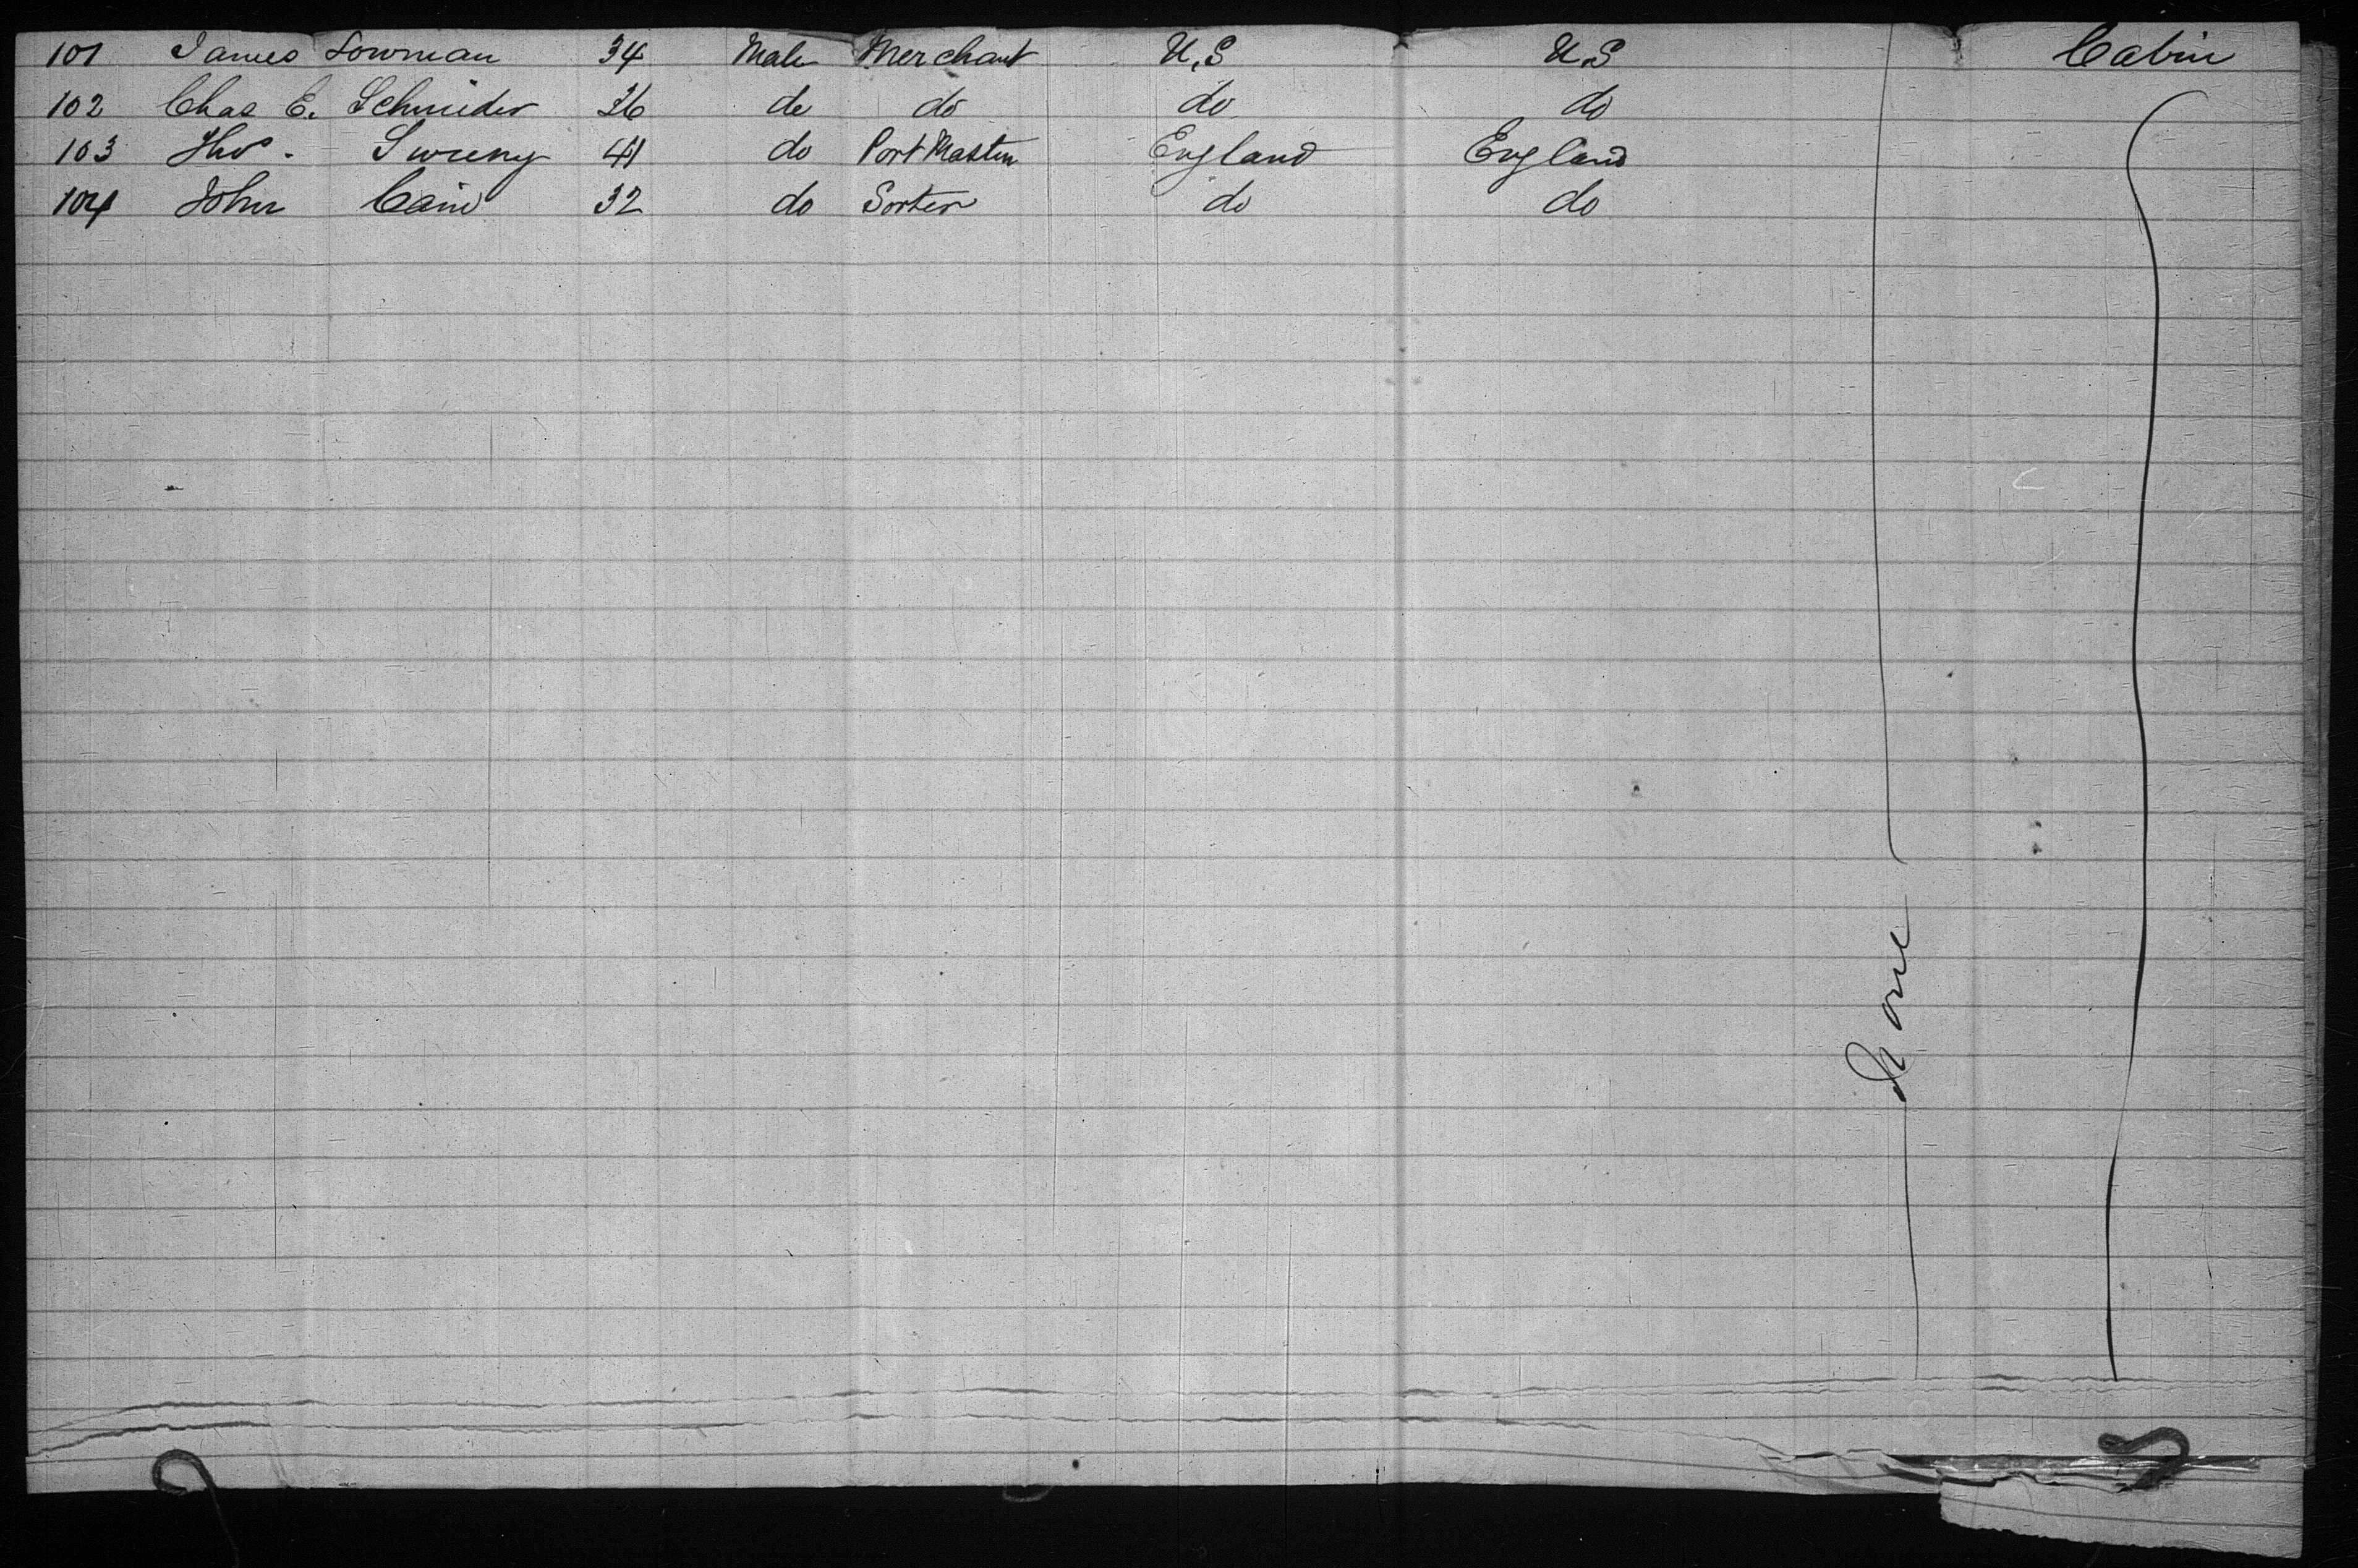 101 James Lowman 34 Male Merchant U.S U.S Cabin
102 Chas E. Schnider 36 do do do do
103 Thos. Sweeny 41 do Port Master England England
104 John Cain 32 do Sorter do do
None